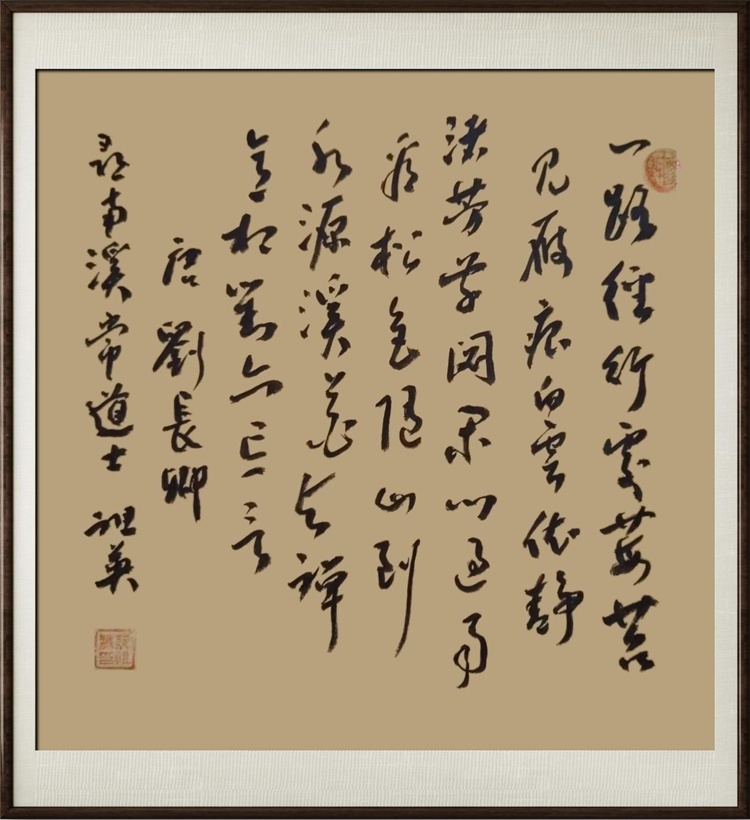 一路經行處莓苔
见履痕白雲依静
渚芳草閉閑门過雨
看松色随山到
水源溪花与禅
意相對亦忘言
唐 劉長卿
尋南溪常道士 祖英